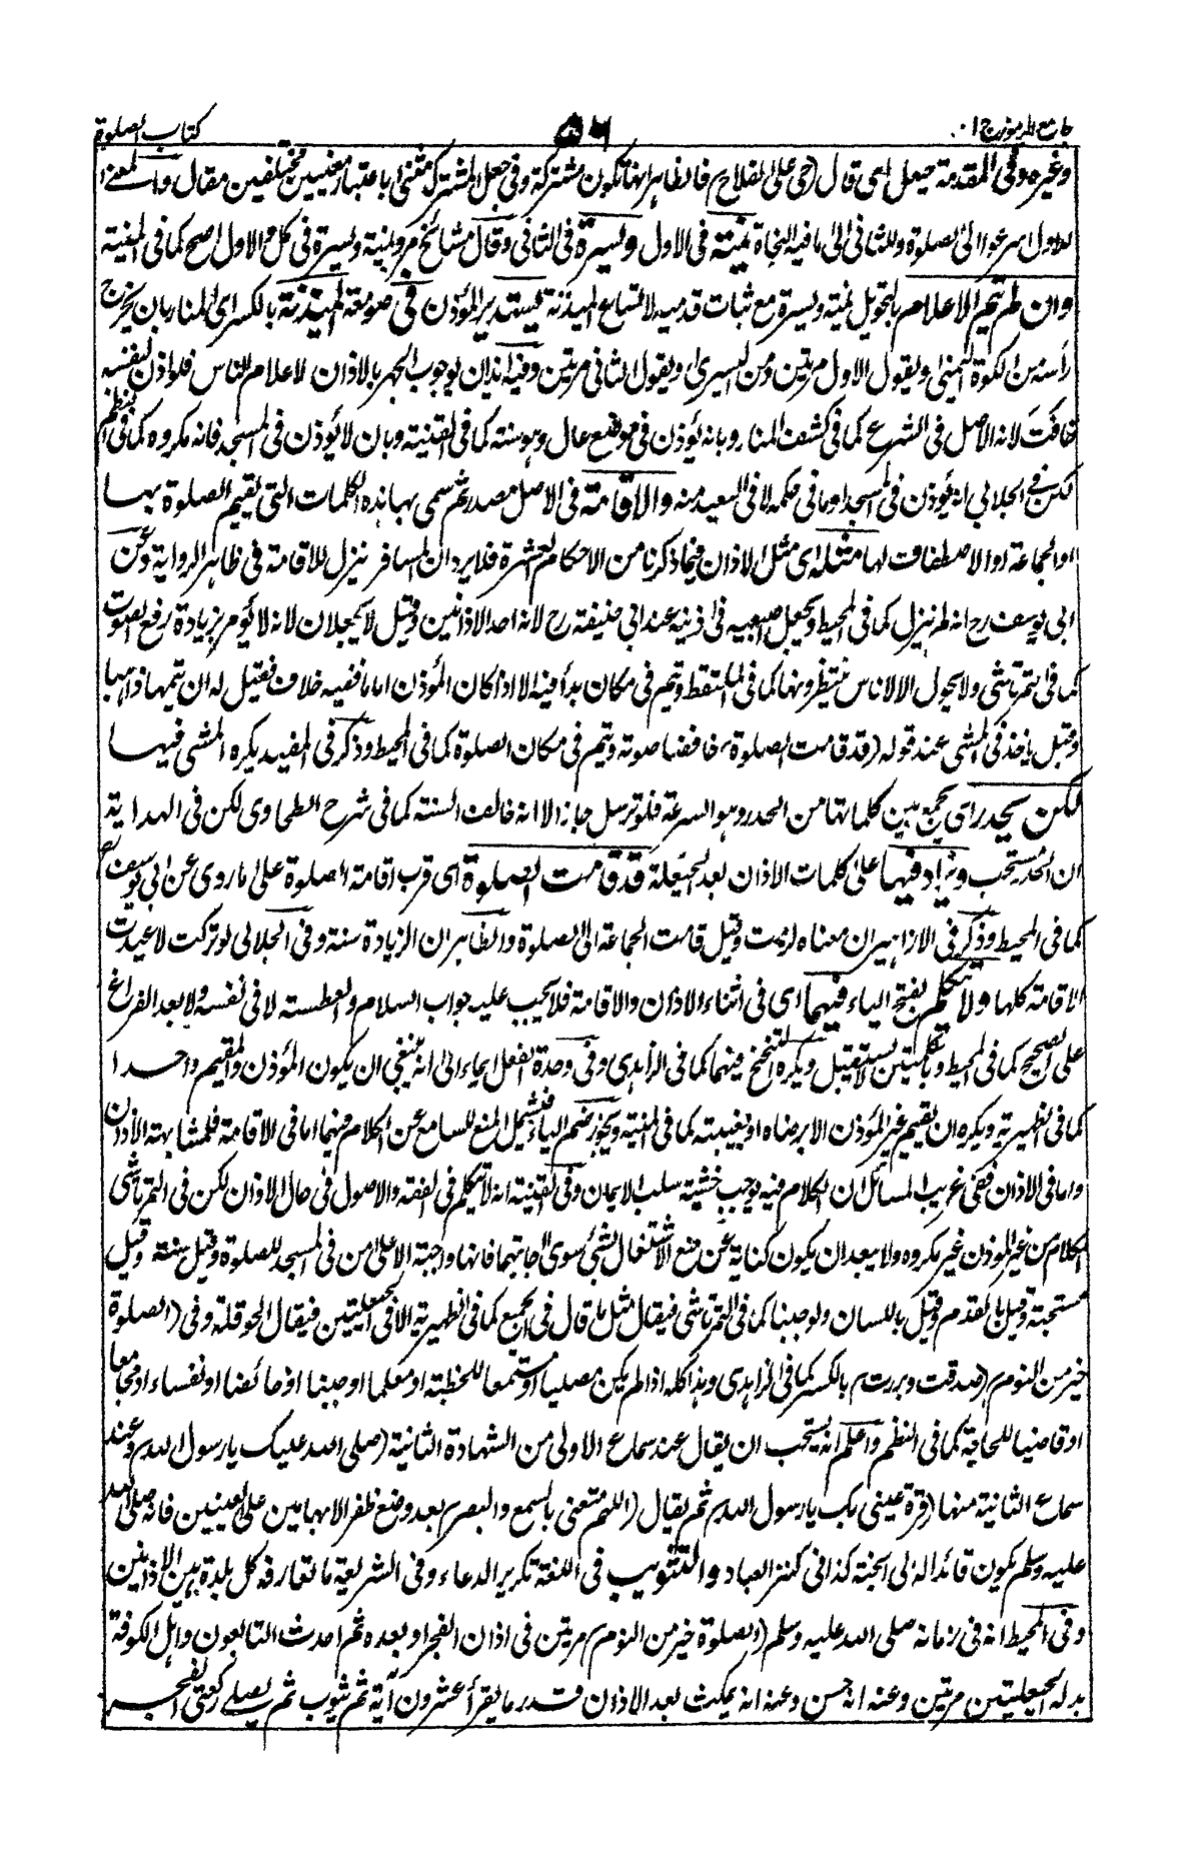 جامع الرموز ج ١
٥٦
كتاب الصلوة
وغيره وفى المقدمة حيعل اى قال (حى على الفلاح) فالظاهر انها تكون مشتركة وفى جعل المشترك مثنى باعتبار معنيين مختلفين مقال والمعنى
للاول اسرعوا الى الصلوة وللثانى الى ما فيه النجاة يمنة فى الاول ويسرة فى الثانى وقال مشائخ مرو يمنة ويسرة فى كل والاول اصح كما فى المنية
وان لم يتم الاعلام بالتحويل يمنة ويسرة مع ثبات قدميه لاتساع الميذنة يستدير المؤذن فى صومعة الميذنة بالكسر اى المنار بان يخرج
رأسه من الكوة اليمنى ويقول الاول مرتين ومن اليسرى ويقول الثانى مرتين وفيه ايذان بوجوب الجهر بالاذان لاعلام الناس فلو اذن لنفسه
خافت لانه الاصل فى الشرع كما فى كشف المنار وبانه يؤذن فى موضع عال وهو سنة كما فى القنية وبان لا يؤذن فى المسجد فانه مكروه كما فى النظم
لكن فى الجلابى انه يؤذن فى المسجد او ما فى حكمه لا فى البعيد منه والاقامة فى الاصل مصدر ثم سمى بها هذه الكلمات التى يقيم الصلوة بها
او الجماعة او الاصطفاف لها مثله اى مثل الاذان فيما ذكرنا من الاحكام العشرة فلا يرد ان المسافر ينزل للاقامة فى ظاهر الرواية وعن
ابى يوسف رح انه لم ينزل كما فى المحيط ويجعل اصبعيه فى اذنيه عند ابى حنيفة رح لانه احد الاذانين وقيل لا يجعلان لانه لا يؤمر بزيادة رفع الصوت
كما فى التمرتاشى ولا يحول الا لاناس ينتظرونها كما فى الملتقط ويتم فى مكان بدأ فيه الا اذا كان المؤذن اماما ففيه خلاف فقيل له ان يتمها ذاهبا
وقيل ياخذ فى المشى عند قوله (قد قامت الصلوة) خافضا صوته ويتم فى مكان الصلوة كما فى المحيط وذكر فى المفيد يكره المشى فيها
لكن يحدر اى يجمع بين كلماتها من الحدر وهو السرعة فلو ترسل جاز الا انه خالف السنة كما فى شرح الطحاوى لكن فى الهداية
ان الحدر مستحب ويزاد فيها على كلمات الاذان بعد الحيعلة قد قامت الصلوة اى قرب اقامة الصلوة على ما روى عن ابى يوسف رح
كما فى المحيط وذكر فى الازاهير ان معناه لزمت وقيل قامت الجماعة الى الصلوة والظاهر ان الزيادة سنة وفى الجلابى لو تركت لاعيدت
الاقامة كلها ولا يتكلم بفتح الياء فيهما اى فى اثناء الاذان والاقامة فلا يجيب عليه جواب السلام والعطسة لا فى نفسه ولا بعد الفراغ
على الصحيح كما فى المحيط وبكلمتين لا يستقبل ويكره التنحنح فيهما كما فى الزاهدى وفى وحدة الفعل ايماء الى انه ينبغى ان يكون المؤذن والمقيم واحدا
كما فى الظهيرية ويكره ان يقيم غير المؤذن الا برضاه او بغيبته كما فى المنية ويجوز ضم الياء فيشمل المنع للسامع عن الكلام فيهما اما فى الاقامة فلمشابهة الاذان
واما فى الاذان ففى غريب المسائل ان الكلام فيه يوجب خشية سلب الايمان وفى القنية انه لا يتكلم فى الفقه والاصول فى حال الاذان لكن فى التمرتاشى
الكلام من غير المؤذن غير مكروه ولا يبعد ان يكون كناية عن منع الاشتغال بشئ سوى اجابتهما فانها واجبة الا على من فى المسجد للصلوة وقيل سنة وقيل
مستحبة وقيل بالقدم وقيل باللسان ولو جنبا كما فى التمرتاشى فيقال مثل ما قال فى الجميع كما فى الظهيرية الا فى الحيعلتين فيقال الحوقلة وفى (الصلوة
خير من النوم) (صدقت وبررت) بالكسر كما فى الزاهدى وهذا كله اذا لم يكن مصليا او مستمعا للخطبة او معلما او جنبا او حائضا او نفساء او مجامعا
او قاضيا للحاجة كما فى النظم واعلم انه يستحب ان يقال عند سماع الاولى من الشهادة الثانية (صلى الله عليك يا رسول الله) وعند
سماع الثانية منها (قرة عينى بك يا رسول الله) ثم يقال (اللهم متعنى بالسمع والبصر) بعد وضع ظفر الابهامين على العينين فانه صلى الله
عليه وسلم يكون قائدا له الى الجنة كذا فى كنز العباد والتثويب فى اللغة تكرير الدعاء وفى الشريعة ما تعارفه كل بلدة بين الاذانين
وفى المحيط انه فى زمانه صلى الله عليه وسلم (الصلوة خير من النوم) مرتين فى اذان الفجر او بعده ثم احدث التابعون واهل الكوفة
بدله الحيعلتين مرتين وعنه انه حسن وعنه انه يمكث بعد الاذان قدر ما يقرأ عشرون آية ثم يثوب ثم يصلى ركعتى الفجر